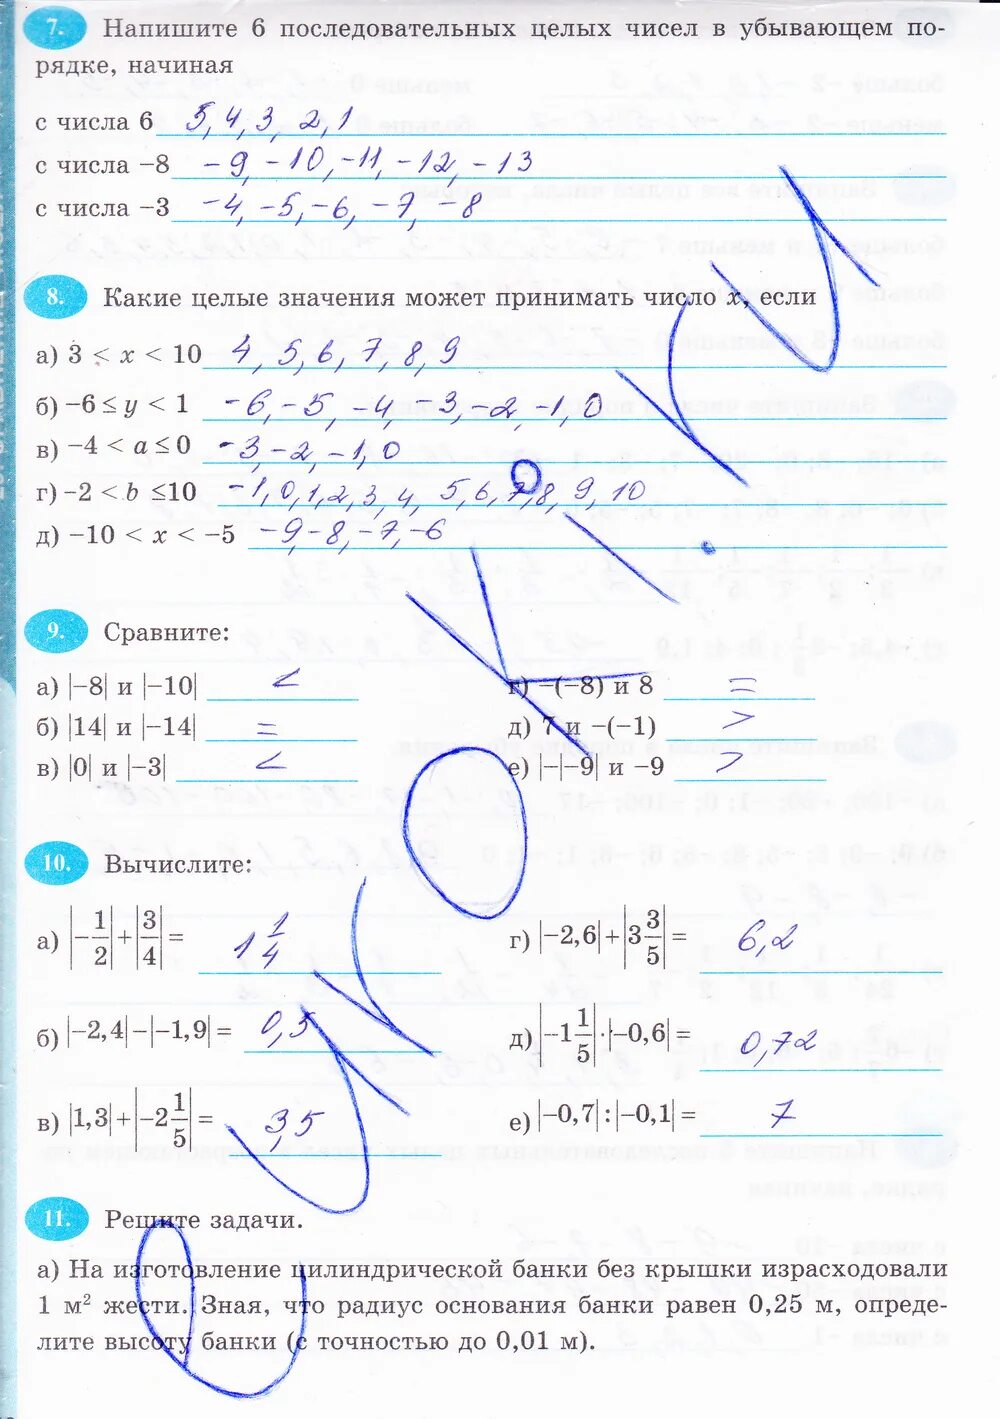 7. Напишите 6 последовательных целых чисел в убывающем по-
рядке, начиная
с числа 6 5, 4, 3, 2, 1
с числа –8 -9, -10, -11, -12, -13
с числа –3 -4, -5, -6, -7, -8
8. Какие целые значения может принимать число x, если
а) 3 < x < 10 4, 5, 6, 7, 8, 9
б) –6 ≤ y < 1 -6, -5, -4, -3, -2, -1, 0
в) –4 < a ≤ 0 -3, -2, -1, 0
г) –2 < b ≤10 -1, 0, 1, 2, 3, 4, 5, 6, 7, 8, 9, 10
д) –10 < x < –5 -9, -8, -7, -6
9. Сравните:
а) |–8| и |–10| <
б) |14| и |–14| =
в) |0| и |–3| <
г) –(–8) и 8 =
д) 7 и –(–1) >
е) |–|–9| и –9 >
10. Вычислите:
а) |–1/2| + |3/4| = 1 1/4
б) |–2,4| – |–1,9| = 0,5
в) |1,3| + |–2 1/5| = 3,5
г) |–2,6| + |3 3/5| = 6,2
д) |–1 1/5| · |–0,6| = 0,72
е) |–0,7| : |–0,1| = 7
11. Решите задачи.
а) На изготовление цилиндрической банки без крышки израсходовали
1 м² жести. Зная, что радиус основания банки равен 0,25 м, опреде-
лите высоту банки (с точностью до 0,01 м).